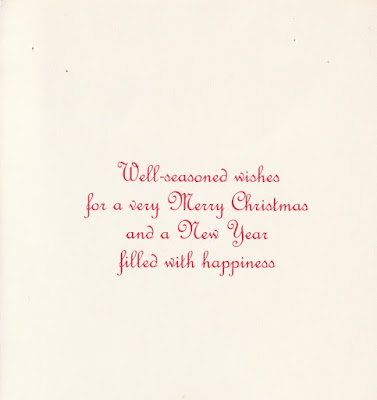 Well-seasoned wishes
for a very Merry Christmas
and a New Year
filled with happiness